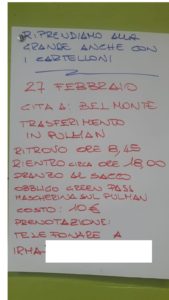 RIPRENDIAMO ALLA
GRANDE ANCHE CON
I CARTELLONI
27 FEBBRAIO
GITA A: BELMONTE
TRASFERIMENTO
IN PULMAN
RITROVO ORE 8,45
RIENTRO CIRCA ORE 18,00
PRANZO AL SACCO
OBBLIGO GREEN PASS
MASCHERINA SUL PULMAN
COSTO: 10€
PRENOTAZIONE:
TELEFONARE A
IRMA-